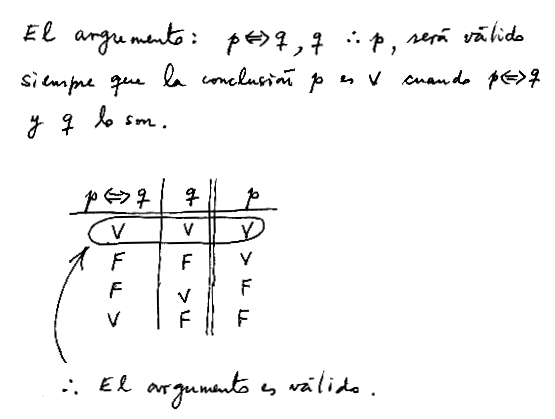 El argumento: p⇔q, q ∴ p, será válido
siempre que la conclusión p es V cuando p⇔q
y q lo son.
p⇔q q p
V V V
F F V
F V F
V F F
∴ El argumento es válido.